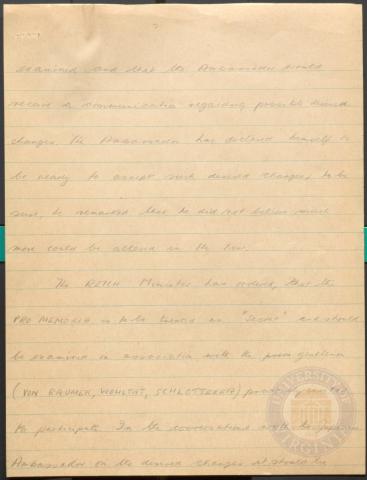 examined and that the Ambassador would
receive a communication regarding possible desired
changes. The Ambassador has declared himself to
be ready to accept such desired changes, to be
sure, he remarked that he did not believe much
more could be altered in the
The REICH Minister has ordered, that the
PRO MEMORIA is to be treated as "Secret" and should
be examined in association with the
(VON RAUMER, WOHLTAT, SCHLOTTERER)
to participate. In the conversations with the Japanese
Ambassador on the desired changes it should be
UNIVERSITY OF
VIRGINIA